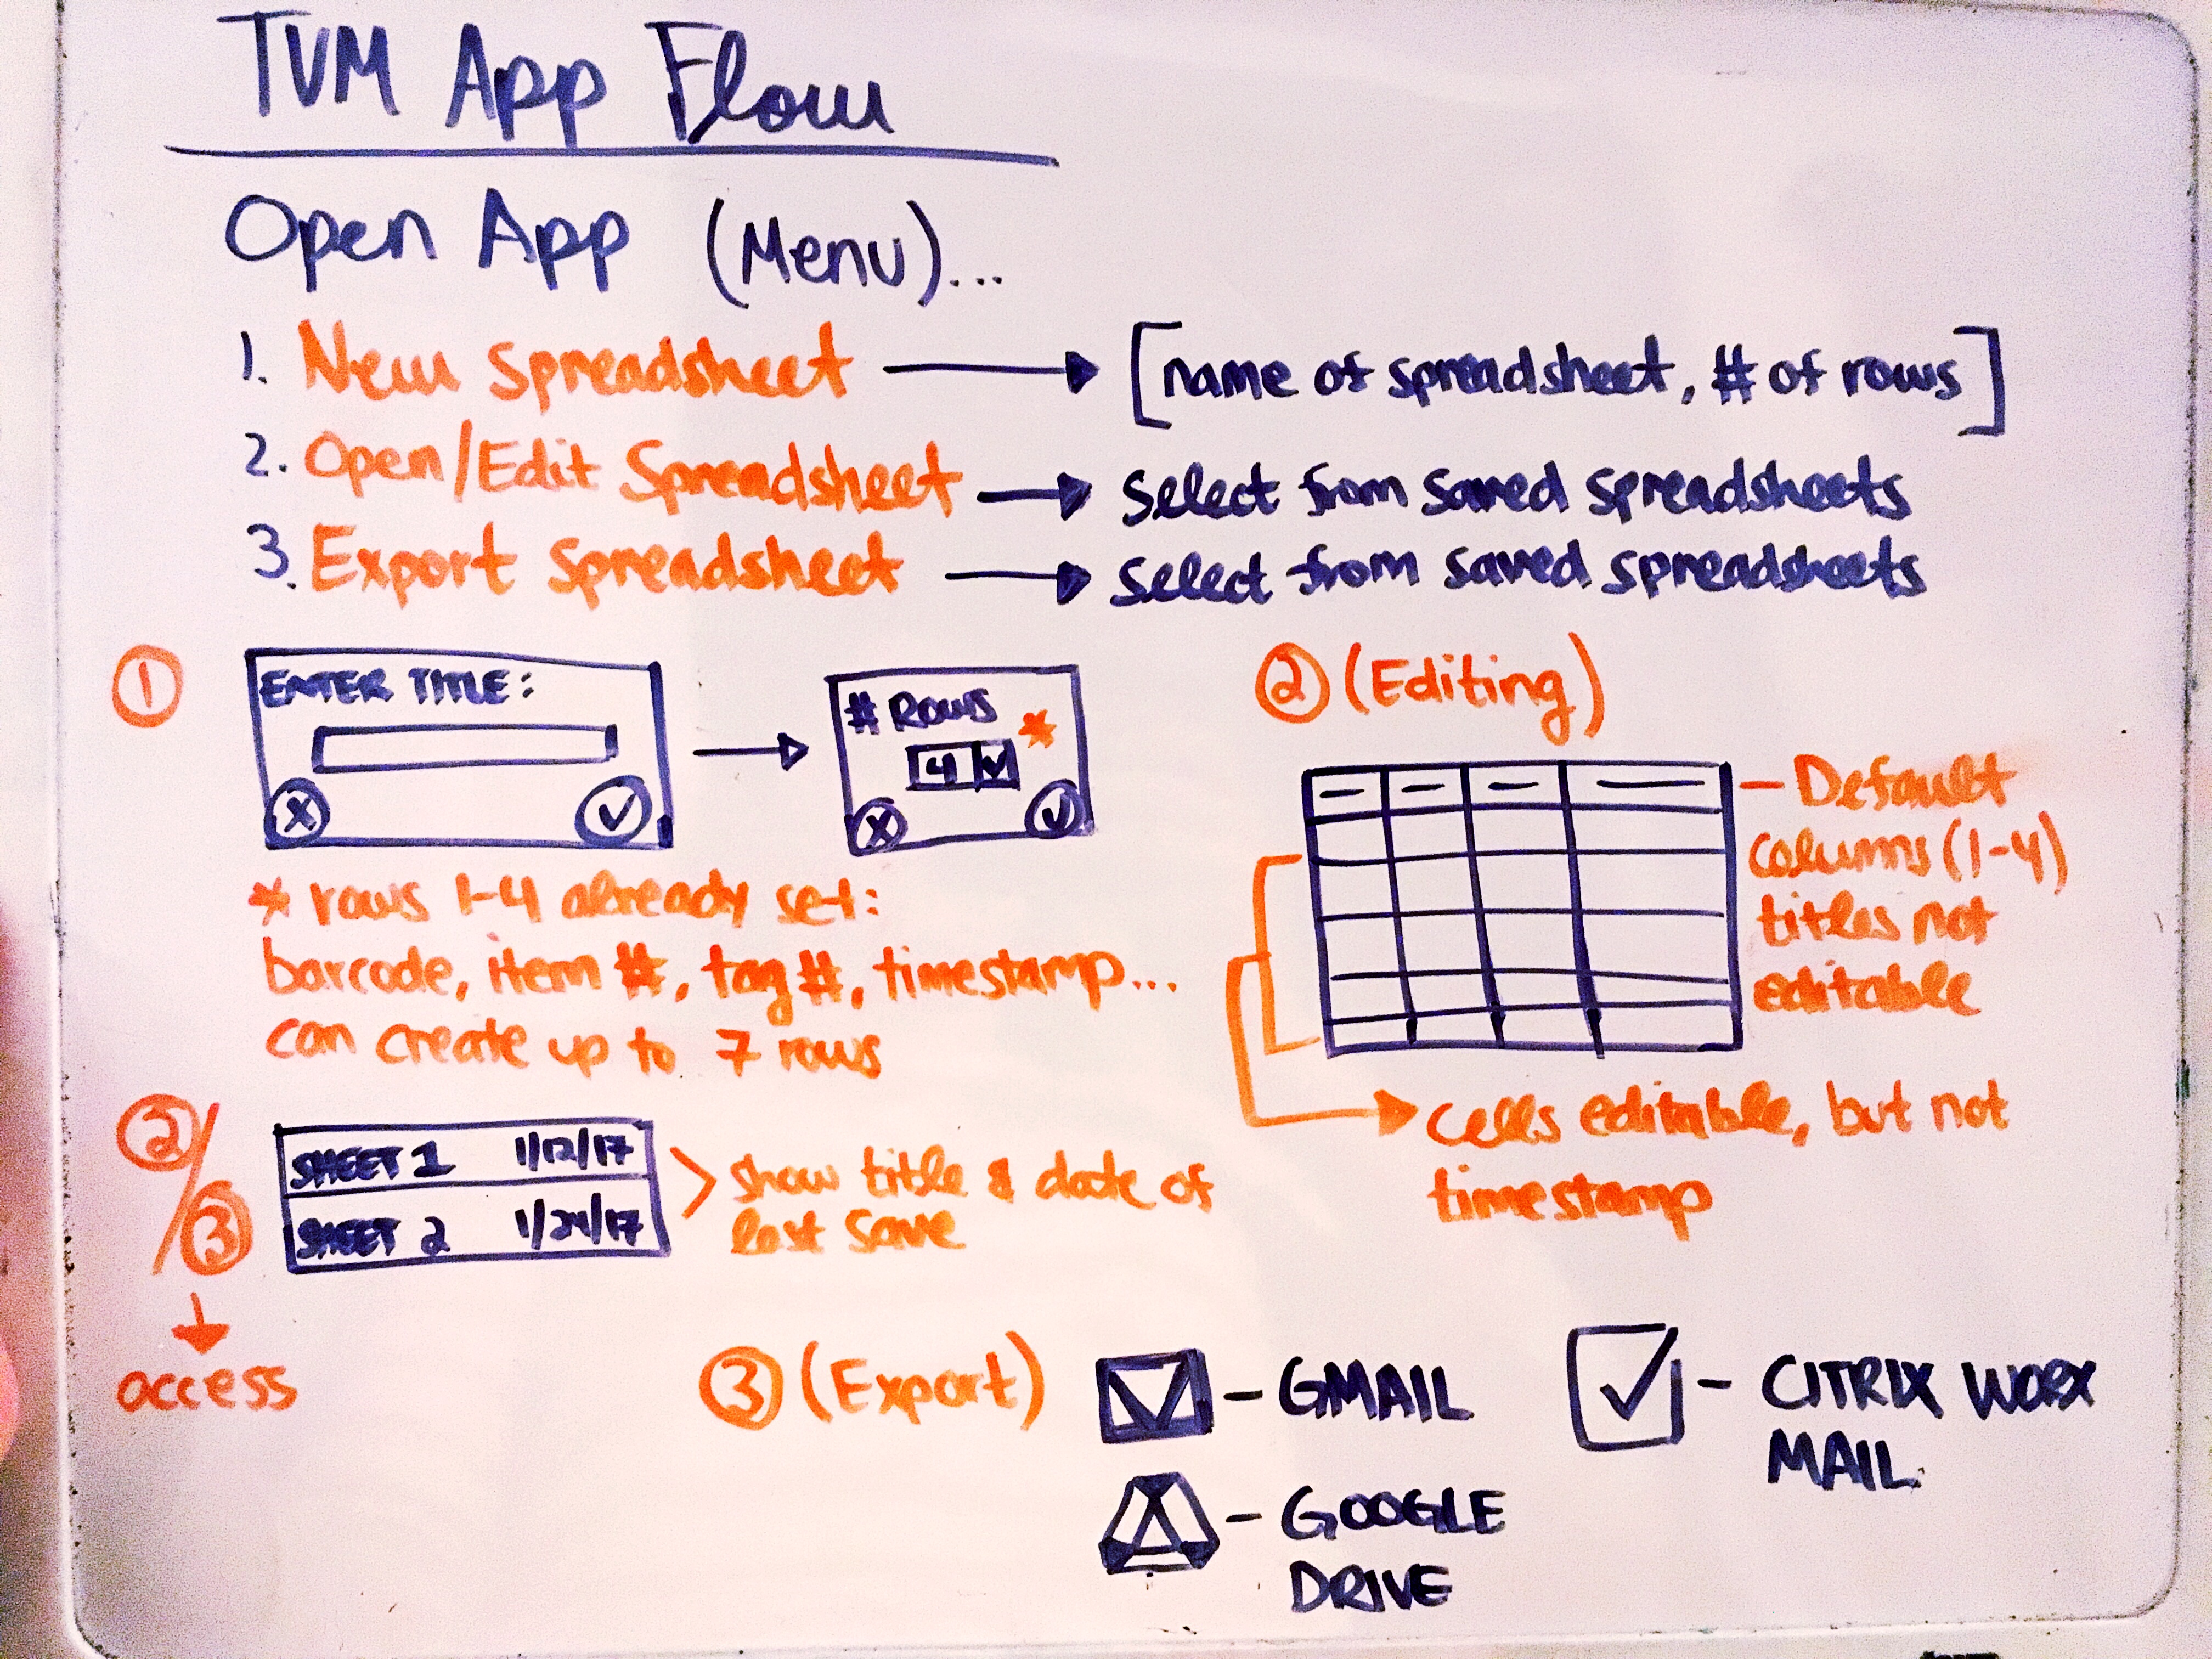 TVM App Flow
Open App (Menu)...
1. New Spreadsheet → [name of spreadsheet, # of rows]
2. Open/Edit Spreadsheet → Select from saved spreadsheets
3. Export Spreadsheet → Select from saved spreadsheets
①
ENTER TITLE:
X ✓
# ROWS *
4 ✓
X ✓
* rows 1-4 already set:
barcode, item #, tag #, timestamp...
can create up to 7 rows
② (Editing)
- Default
columns (1-4)
titles not
editable
cells editable, but not
timestamp
②/③
↓
access
SHEET 1 1/12/17
SHEET 2 1/24/17
> show title & date of
last save
③ (Export)
- GMAIL
- GOOGLE
DRIVE
✓ - CITRIX WORX
MAIL